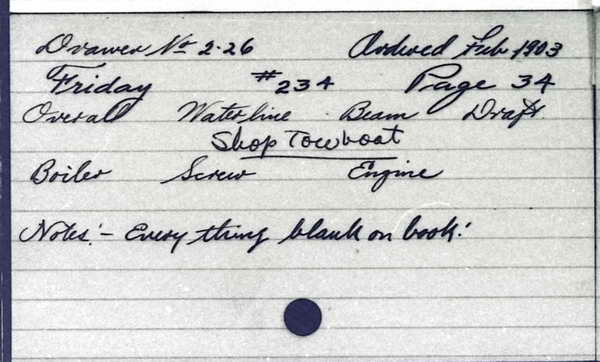 Drawer No 2-26 Ordered Feb 1903
Friday #234 Page 34
Overall Waterline Beam Draft
Shop Towboat
Boiler Screw Engine
Notes:- Every thing blank on book.